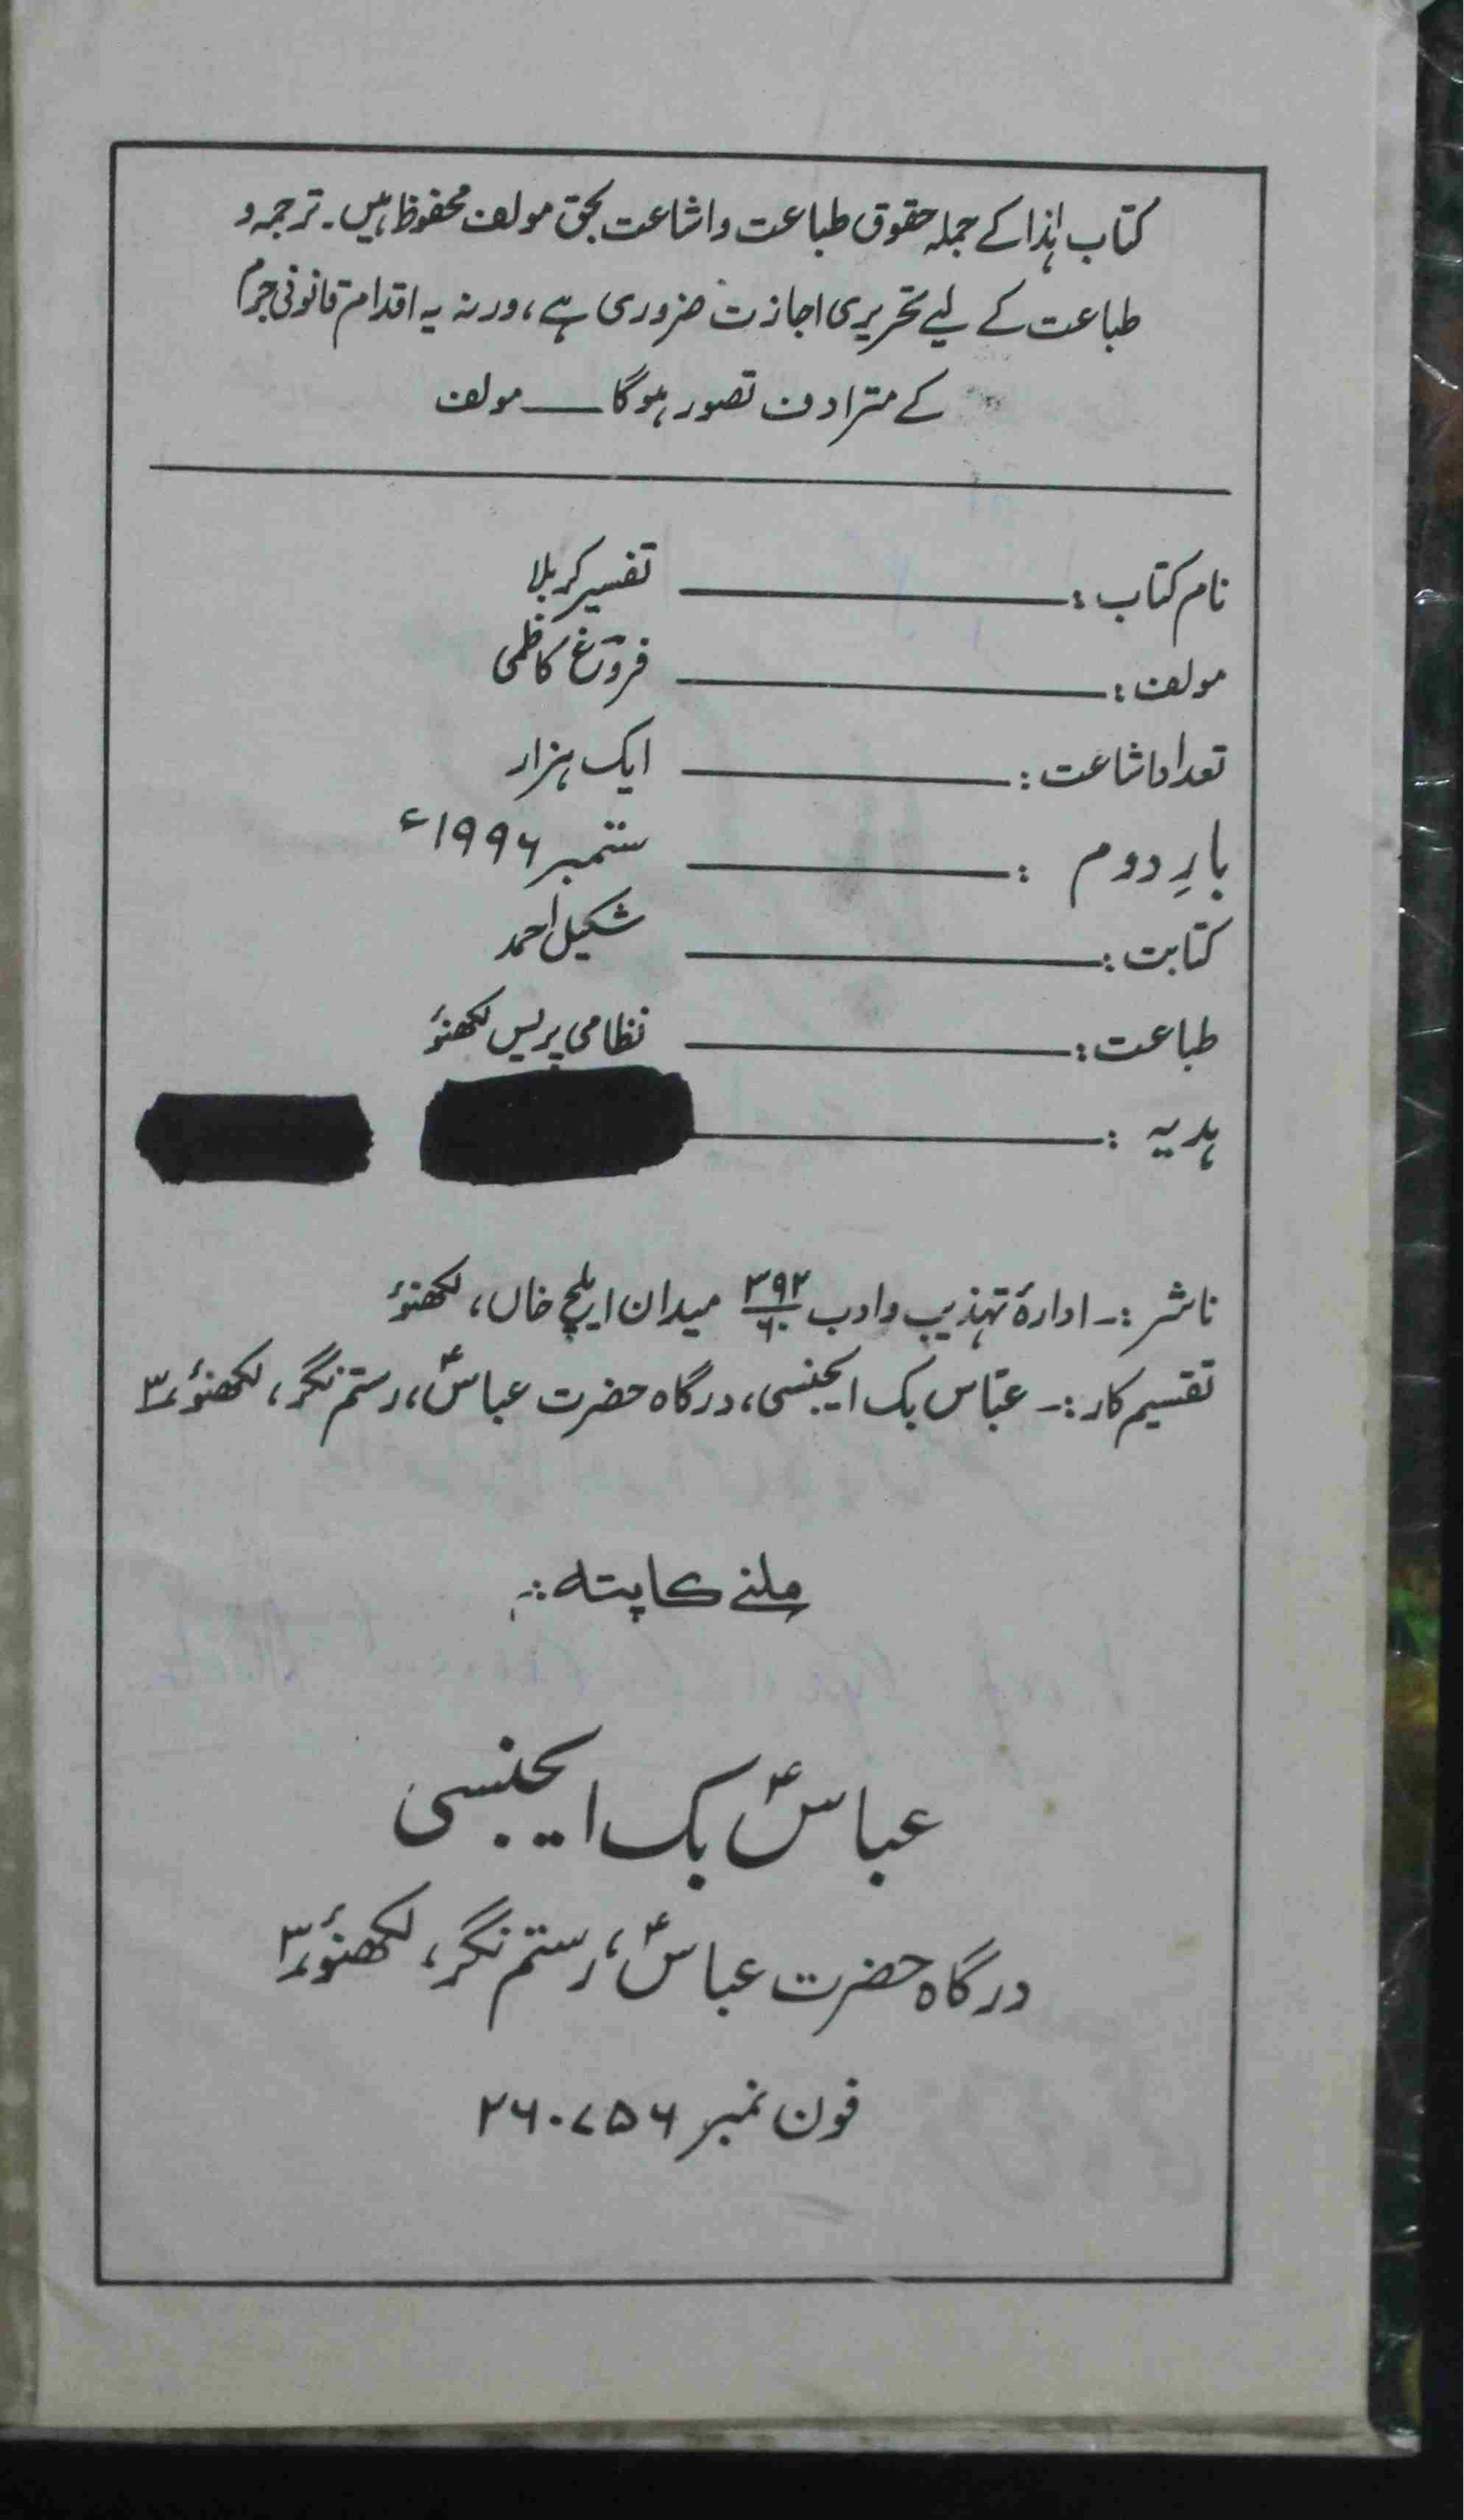 کتاب ہٰذا کے جملہ حقوق طباعت و اشاعت بحق مولف محفوظ ہیں۔ ترجمہ و
طباعت کے لیے تحریری اجازت ضروری ہے، ورنہ یہ اقدام قانونی جرم
کے مترادف تصور ہوگا ــــ مولف
نام کتاب : ــــــــ تفسیر کربلا
مولف : ــــــــ فروغؔ کاظمی
تعداد اشاعت : ــــــــ ایک ہزار
بارِ دوم : ــــــــ ستمبر ۱۹۹۶ء
کتابت : ــــــــ شکیل احمد
طباعت : ــــــــ نظامی پریس لکھنؤ
ہدیہ : ــــــــ
ناشر :۔ ادارۂ تہذیب و ادب ۳۹۲/۶۰ میدان ایلچ خاں، لکھنؤ
تقسیم کار :۔ عبّاس بک ایجنسی، درگاہ حضرت عباسؑ، رستم نگر، لکھنؤ۳
ملنے کا پتہ :۔
عباسؑ بک ایجنسی
درگاہ حضرت عباسؑ، رستم نگر، لکھنؤ۳
فون نمبر ۲۶۰۷۵۶